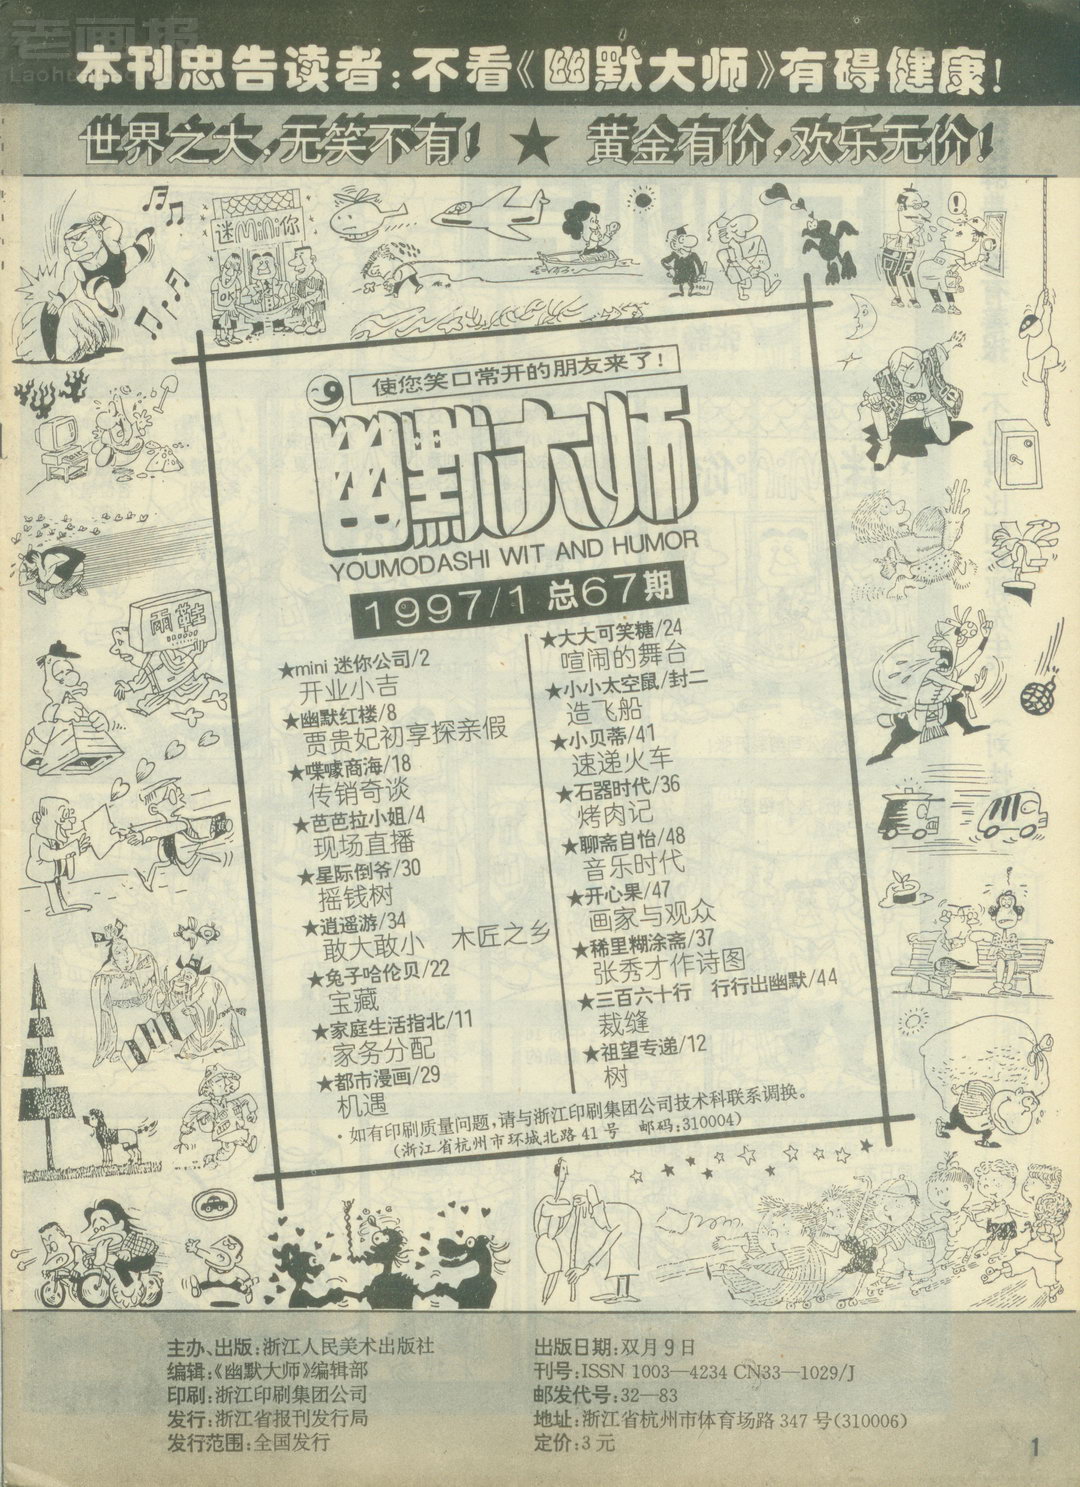 老画报
本刊忠告读者:不看《幽默大师》有碍健康!
世界之大,无笑不有! ★ 黄金有价,欢乐无价!
迷mini你
雨鞋
使您笑口常开的朋友来了!
幽默大师
YOUMODASHI WIT AND HUMOR
1997/1 总67期
★mini 迷你公司/2
开业小吉
★幽默红楼/8
贾贵妃初享探亲假
★喋噱商海/18
传销奇谈
★芭芭拉小姐/4
现场直播
★星际倒爷/30
摇钱树
★逍遥游/34
敢大敢小 木匠之乡
★兔子哈伦贝/22
宝藏
★家庭生活指北/11
家务分配
★都市漫画/29
机遇
★大大可笑糖/24
喧闹的舞台
★小小太空鼠/封二
造飞船
★小贝蒂/41
速递火车
★石器时代/36
烤肉记
★聊斋自怡/48
音乐时代
★开心果/47
画家与观众
★稀里糊涂斋/37
张秀才作诗图
★三百六十行 行行出幽默/44
裁缝
★祖望专递/12
树
·如有印刷质量问题,请与浙江印刷集团公司技术科联系调换。
(浙江省杭州市环城北路41号 邮码:310004)
主办、出版:浙江人民美术出版社
编辑:《幽默大师》编辑部
印刷:浙江印刷集团公司
发行:浙江省报刊发行局
发行范围:全国发行
出版日期:双月9日
刊号:ISSN 1003—4234 CN33—1029/J
邮发代号:32—83
地址:浙江省杭州市体育场路347号(310006)
定价:3元
1